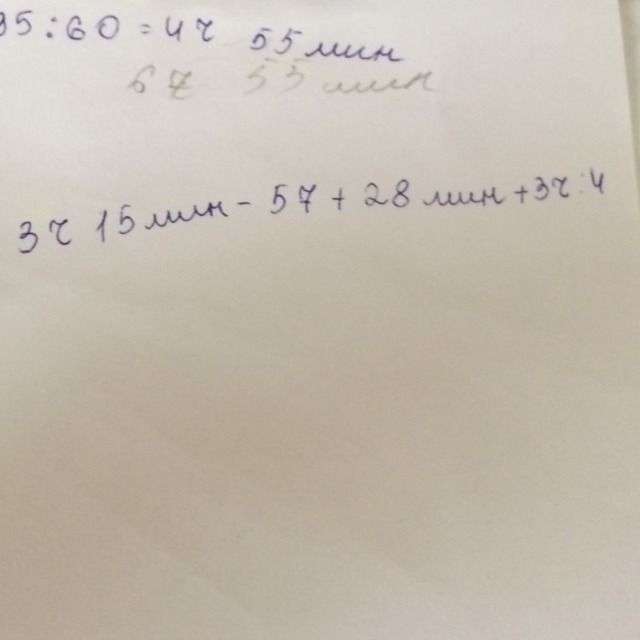 95:60 = 4ч 55 мин
6ч 55 мин
3ч 15 мин - 57 + 28 мин + 3ч:4